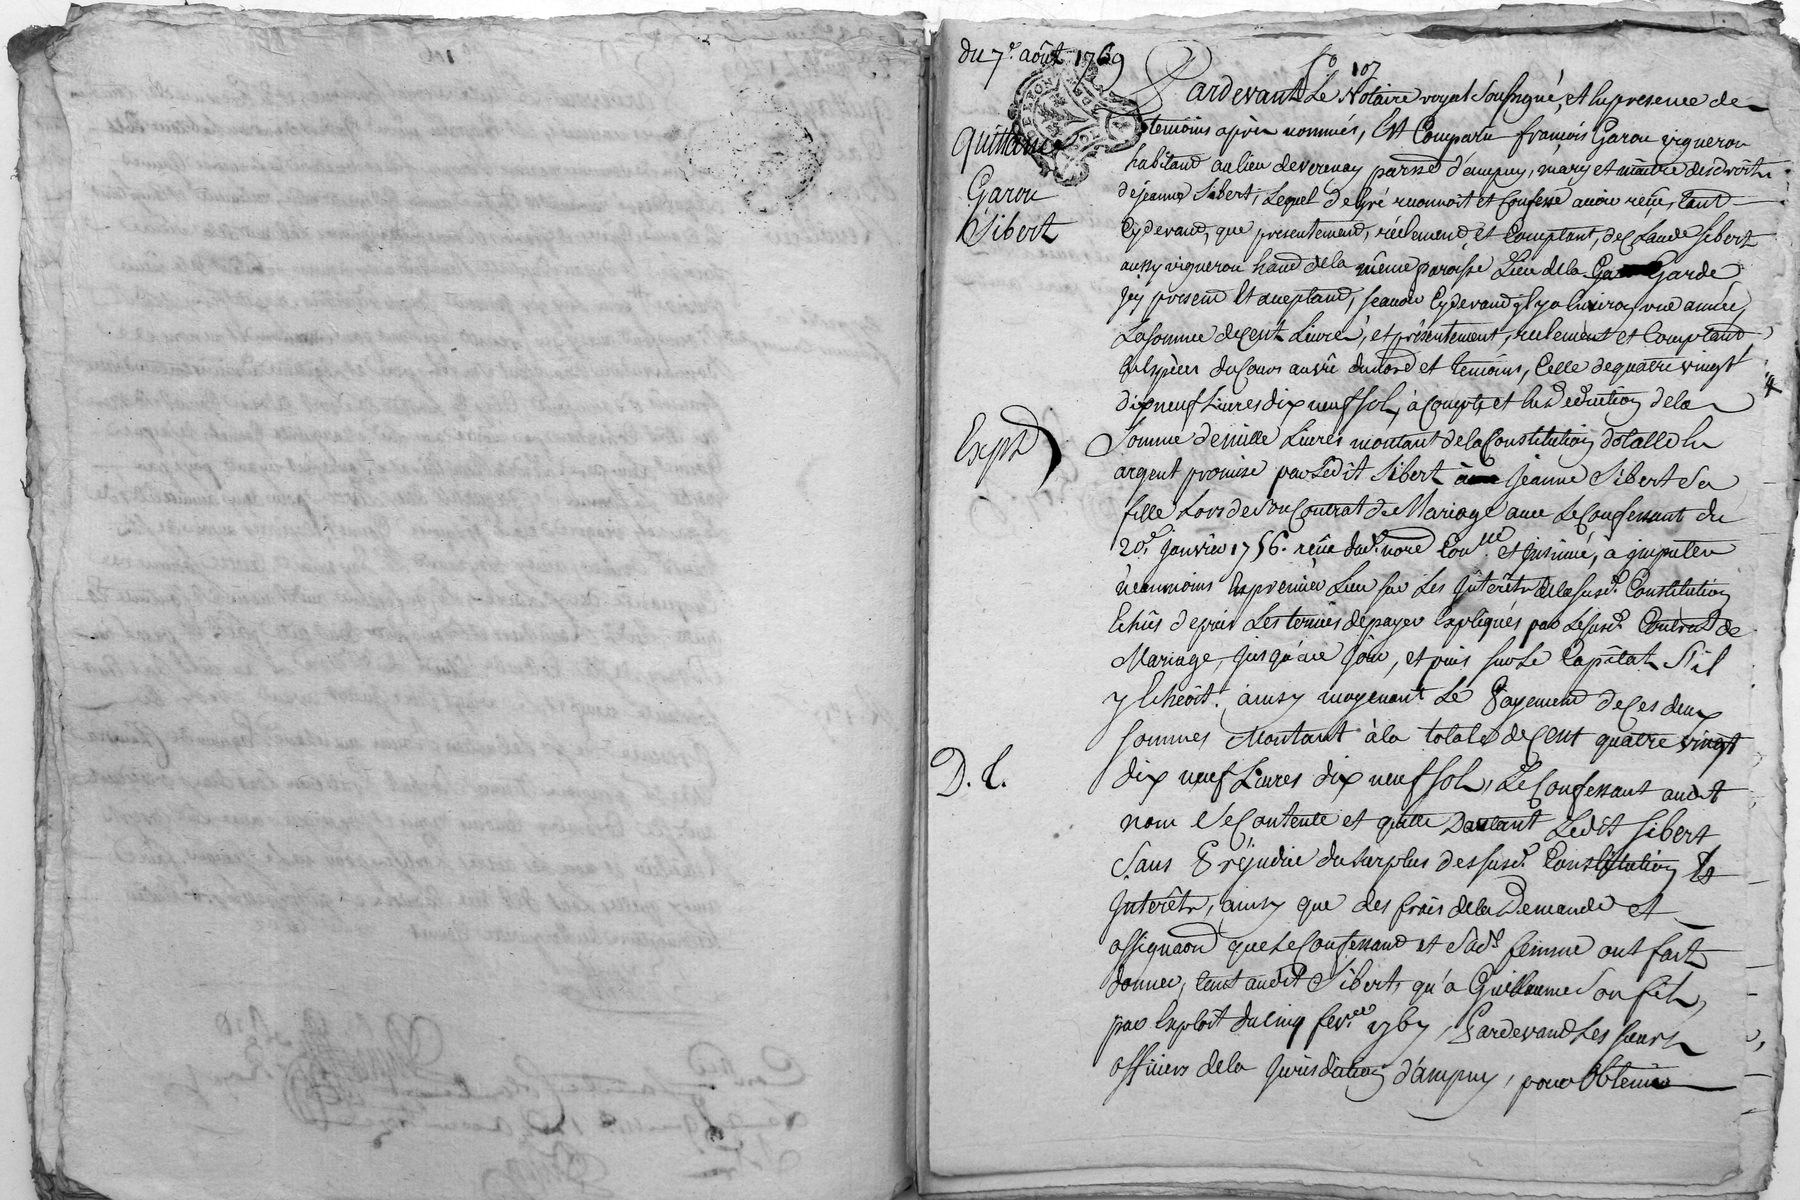 du 7.e août 1769
fo 107
quittance
Garon
Sibert
Expd
D. L.
Pardevant Le Notaire royal Soussigné, et En presence de
temoins après nommés, Est Comparu françois Garon vigneron
habitand au lieu de verenay parsse d'ampuy, mary et maitre des droits
de jeanne Sibert, Lequel de gré reconnoit et Confesse avoir reçu, tant
Cydevand, que presentemend, réelement et Comptant, de Claude Sibert
aussy vigneron hand de la même paroisse Lieu de la Garde
jcy present et acceptand, scavoir Cydevand jl y a Environ une année,
La somme de Cent Livres, et présentement, reelement et Comptand,
En Espèces du Cours au vû du nore et temoins, Celle de quatre vingt
dix neuf Livres dix neuf sols, à Compte et En Deduction de la
Somme de mille Livres montant de la Constitution dotalle En
argent promise par Ledit Sibert à jeanne Sibert Sa
fille Lors de Son Contrat de Mariage avec Le Confessant du
20.e janvier 1756. reçu dud. nore Con.lle et jnsinué, a jmputer
neanmoins En premier Lieu sur Les jnterêts de la susd. Constitution
Echûs depuis Les termes de payer Expliqués par Le susd. Contrat de
Mariage, jusqu'à ce jour, et puis sur Le Capital S'il
y Echeoit. ainsy moyenant Le Payement de Ces deux
sommes Montant à la totale de Cent quatre vingt
dix neuf Livres dix neuf sols, Le Confessant audt
nom Se Contente et quitte D'autant Ledit Sibert
Sans Préjudice du surplus des susd. Constitution Et
jnterêts, ainsy que des frais de la Demande et
assignaon que Le Confessand et Sad. femme ont fait
donner, tant audit Sibert, qu'a Guillaume Son fils,
par Exploit du cinq fev.er 1767, Pardevand Les sieurs
officiers de la Jurisdiction d'ampuy, pour Obtenir